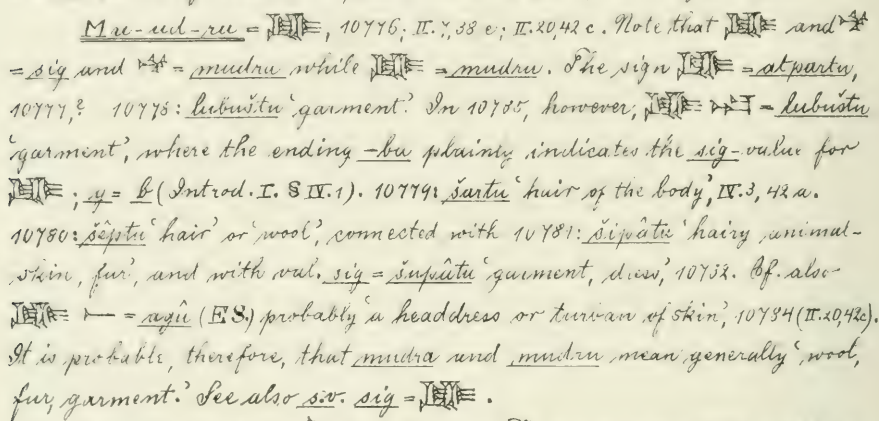 Mu-ud-ru = 𒋠, 10776; II. 7, 38 e; II. 20, 42 c. Note that 𒋠 and
= sig and = mudru while 𒋠 = mudru. The sign 𒋠 = atpartu,
10777,? 10778: lubuštu 'garment.' In 10785, however, 𒋠 𒁍 = lubuštu
'garment', where the ending -bu plainly indicates the sig-value for
𒋠; g = b (Introd. I. § IV. 1). 10779: šartu 'hair of the body', IV. 3, 42 a.
10780: šêptu 'hair' or 'wool', connected with 10781: šipâtu 'hairy animal-
skin, fur', and with val. sig = šupâtu 'garment, dress', 10782. Cf. also
𒋠 𒀸 = agû (ES.) probably 'a headdress or turban of skin', 10784 (II. 20, 42c).
It is probable, therefore, that mudra and mudru mean generally 'wool,
fur, garment.' See also s.v. sig = 𒋠.